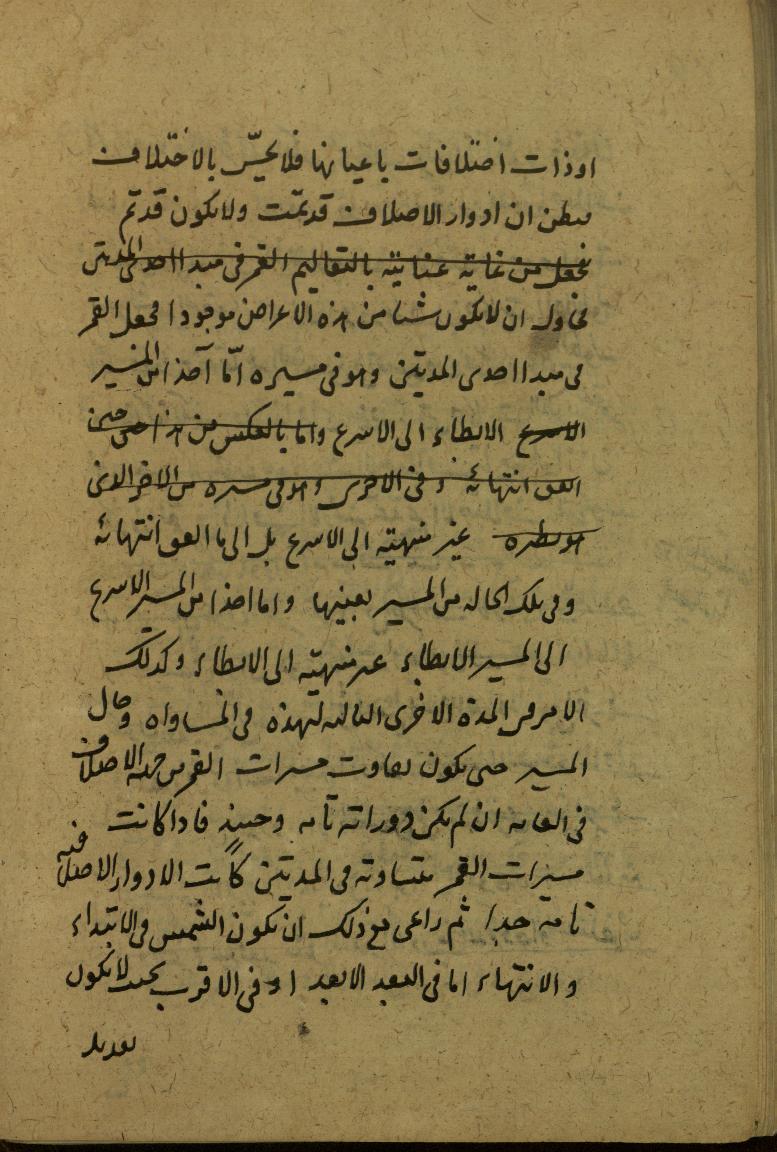 او ذات اختلافات باعيانها فلا يحسّ بالاختلاف
فيظن ان ادوار الاختلاف قد تمّت ولا يكون قد تم
فجعل من غاية عنايته بالتعاليم القمر في مبدا احدى المدتين
يحاول ان لا يكون شيا من هذه الاعراض موجودا فجعل القمر
في مبدا احدى المدتين وهو في مسيره امّا آخذا من المسير
الاسرع الابطاء الى الاسرع واما بالعكس من هذا حتى حين
اتفق انتهائه وفي الاخرى وهو في مسيره من الاخر الذي
هو نظيره غير منتهية الى الاسرع بل الى ما اتفق انتهائه
وفي تلك الحالة من المسير بعينها واما اخذا من المسير الاسرع
الى المسير الابطاء غير منتهيّة الى الابطاء وكذلك
الامر في المدة الاخرى التالية لهذه في المساواة وحال
المسير حتى يكون تفاوت مسيرات القمر من جهة الاختلاف
في الغاية ان لم يكن دوراته تامه وحينئذ فاذا كانت
مسيرات القمر متساوية في المدتين كانت الادوار الاختلافية
تامه جدا ثم راعى مع ذلك ان يكون الشمس في الابتداء
والانتهاء اما في البعد الابعد او في الاقرب بحيث لا يكون
تعديل